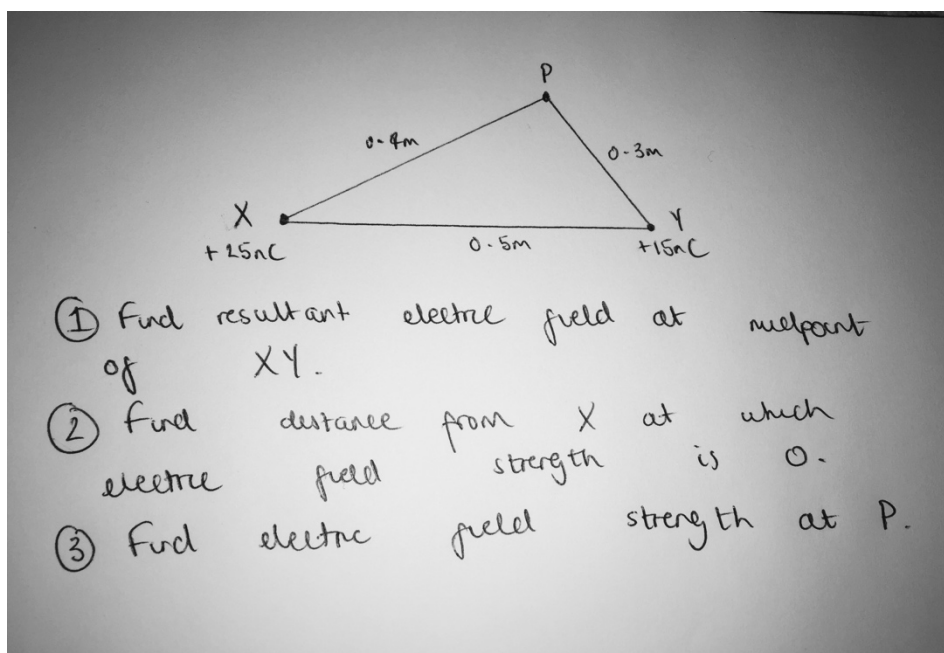 P
0.4m
0.3m
X
Y
+25nC
0.5m
+15nC
① Find resultant electric field at midpoint
of XY.
② Find distance from X at which
electric field strength is 0.
③ Find electric field strength at P.